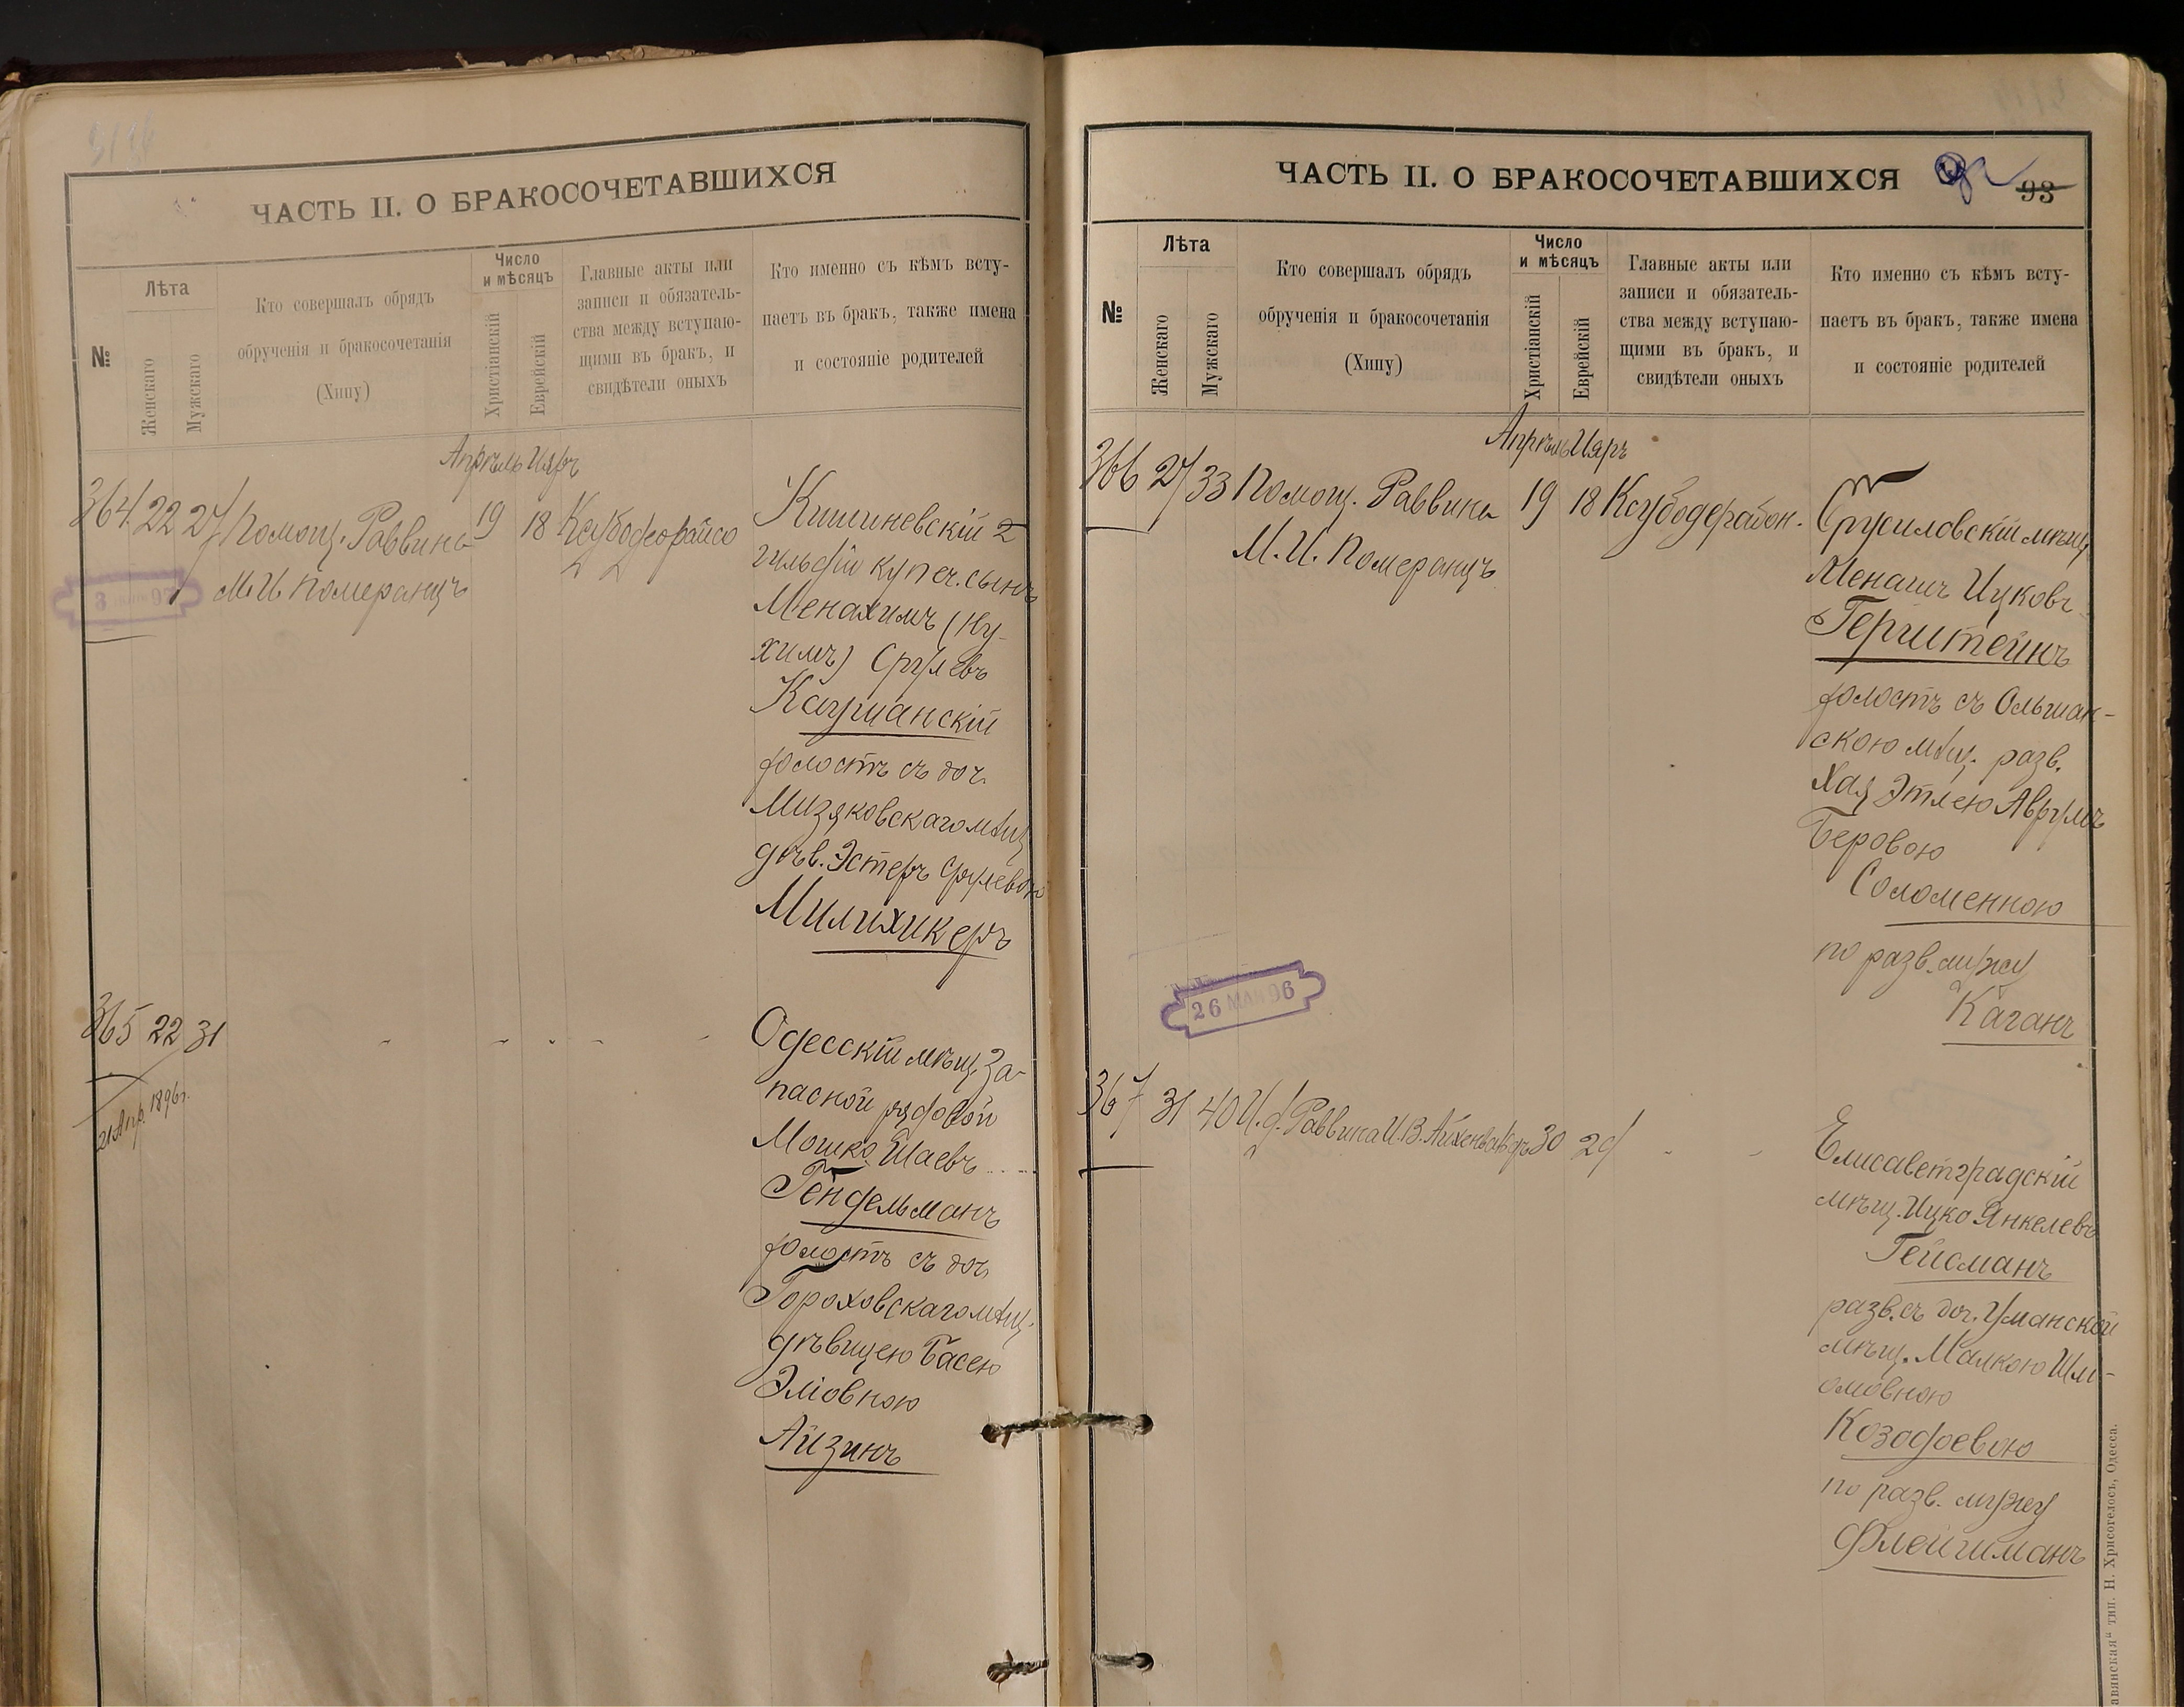 ЧАСТЬ II. О БРАКОСОЧЕТАВШИХСЯ
№
Лѣта
Женскаго
Мужскаго
Кто совершалъ обрядъ
обрученія и бракосочетанія
(Хипу)
Число
и мѣсяцъ
Христіанскій
Еврейскій
Главные акты или
записи и обязатель-
ства между вступаю-
щими въ бракъ, и
свидѣтели оныхъ
Кто именно съ кѣмъ всту-
паетъ въ бракъ, также имена
и состояніе родителей
Апрѣль Ияръ
364 22 27 Помощ. Раввина 19 18
М. И. Померанцъ
Кишиневскій 2
гильдіи купеч. сынъ
Менахимъ (Ну-
химъ) Срулевъ
Каушанскій
холостъ съ доч.
Мизяковскаго мѣщ.
дѣв. Эстеръ Срулевою
Милихикеръ
365 22 31
21 Апр. 1896 г.
Одесскій мѣщ. За-
пасной рядовой
Мошко Шаевъ
Гендельманъ
холостъ съ доч.
Гороховскаго мѣщ.
дѣвицею Басею
Эліовною
Айзинъ
ЧАСТЬ II. О БРАКОСОЧЕТАВШИХСЯ
93
№
Лѣта
Женскаго
Мужскаго
Кто совершалъ обрядъ
обрученія и бракосочетанія
(Хипу)
Число
и мѣсяцъ
Христіанскій
Еврейскій
Главные акты или
записи и обязатель-
ства между вступаю-
щими въ бракъ, и
свидѣтели оныхъ
Кто именно съ кѣмъ всту-
паетъ въ бракъ, также имена
и состояніе родителей
Апрѣль Ияръ
366 27 33 Помощ. Раввина 19 18
М. И. Померанцъ
мѣщ.
Менашъ Ицковъ
Герштейнъ
холостъ съ Ольшан-
скою мѣщ. разв.
Хая Этлею Аврумъ
Беровою
Соломенною
по разв. мужу
Каганъ
26 МАЯ 96
367 31 40 И. д. Раввина И. В. Айхенвальдъ 30 29
Елисаветградскій
мѣщ. Ицко Янкелевъ
Гейсманъ
разв. съ доч. Уманской
мѣщ. Малкою Шлі-
омовною
Козодоевою
по разв. мужу
Флейшманъ
тип. Н. Хрисогелосъ, Одесса.